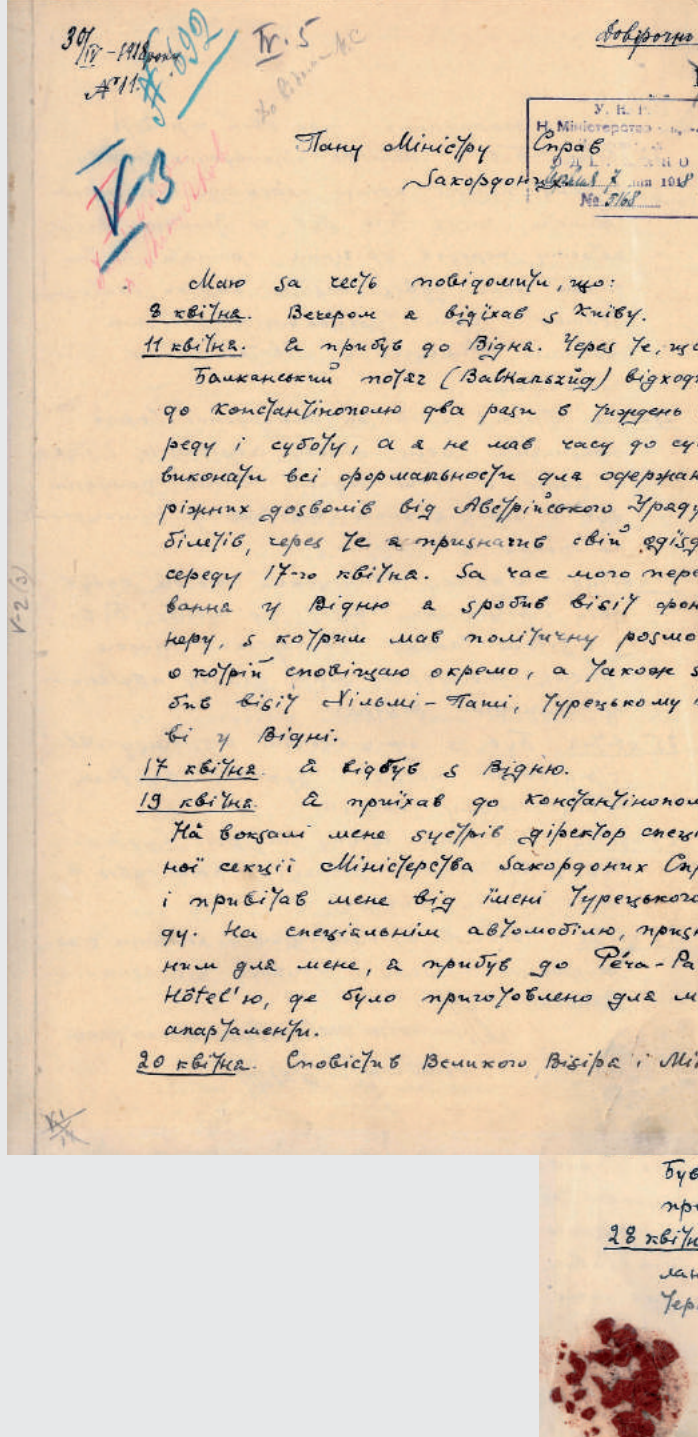 30/IV - 1918 року
№ 11.
№ 692
IV. 5
Довірочно
V-3
У. Н. Р.
Н. Міністерство
1918
№ 5168
Пану Міністру Справ
Закордонних
Маю за честь повідомити, що:
8 квітня. Вечером я відїхав з Київу.
11 квітня. Я прибув до Відня. Через те, що
Балканський потяг (Balkanszüg) відход
до Константінополю два рази в тиждень
реду і суботу, а я не мав часу до су
виконати всі формальности для одержан
ріжних дозволів від Австрійського Уряду
білетів, через те я призначив свій одїзд
середу 17-го квітня. За час мого пере
вання у Відню я зробив візіт фон
неру, з котрим мав політичну розмо
о котрій сповіщаю окремо, а також з
бив візіт Хільмі-Паші, турецькому п
ві у Відні.
17 квітня. Я відбув з Відню.
19 квітня. Я приїхав до Константінопол
На вокзалі мене зустрів діректор спеці
ної секції Міністерства Закордоних Сп
і привітав мене від імені Турецького
ду. На спеціальнім автомобілю, призн
ним для мене, я прибув до Péra-Pa
Hôtel'ю, де було приготовлено для м
апартаменти.
20 квітня. Сповістив Великого Візіра і Мін
V-2 (3)
Був
пр
28 квітн
лан
Тер